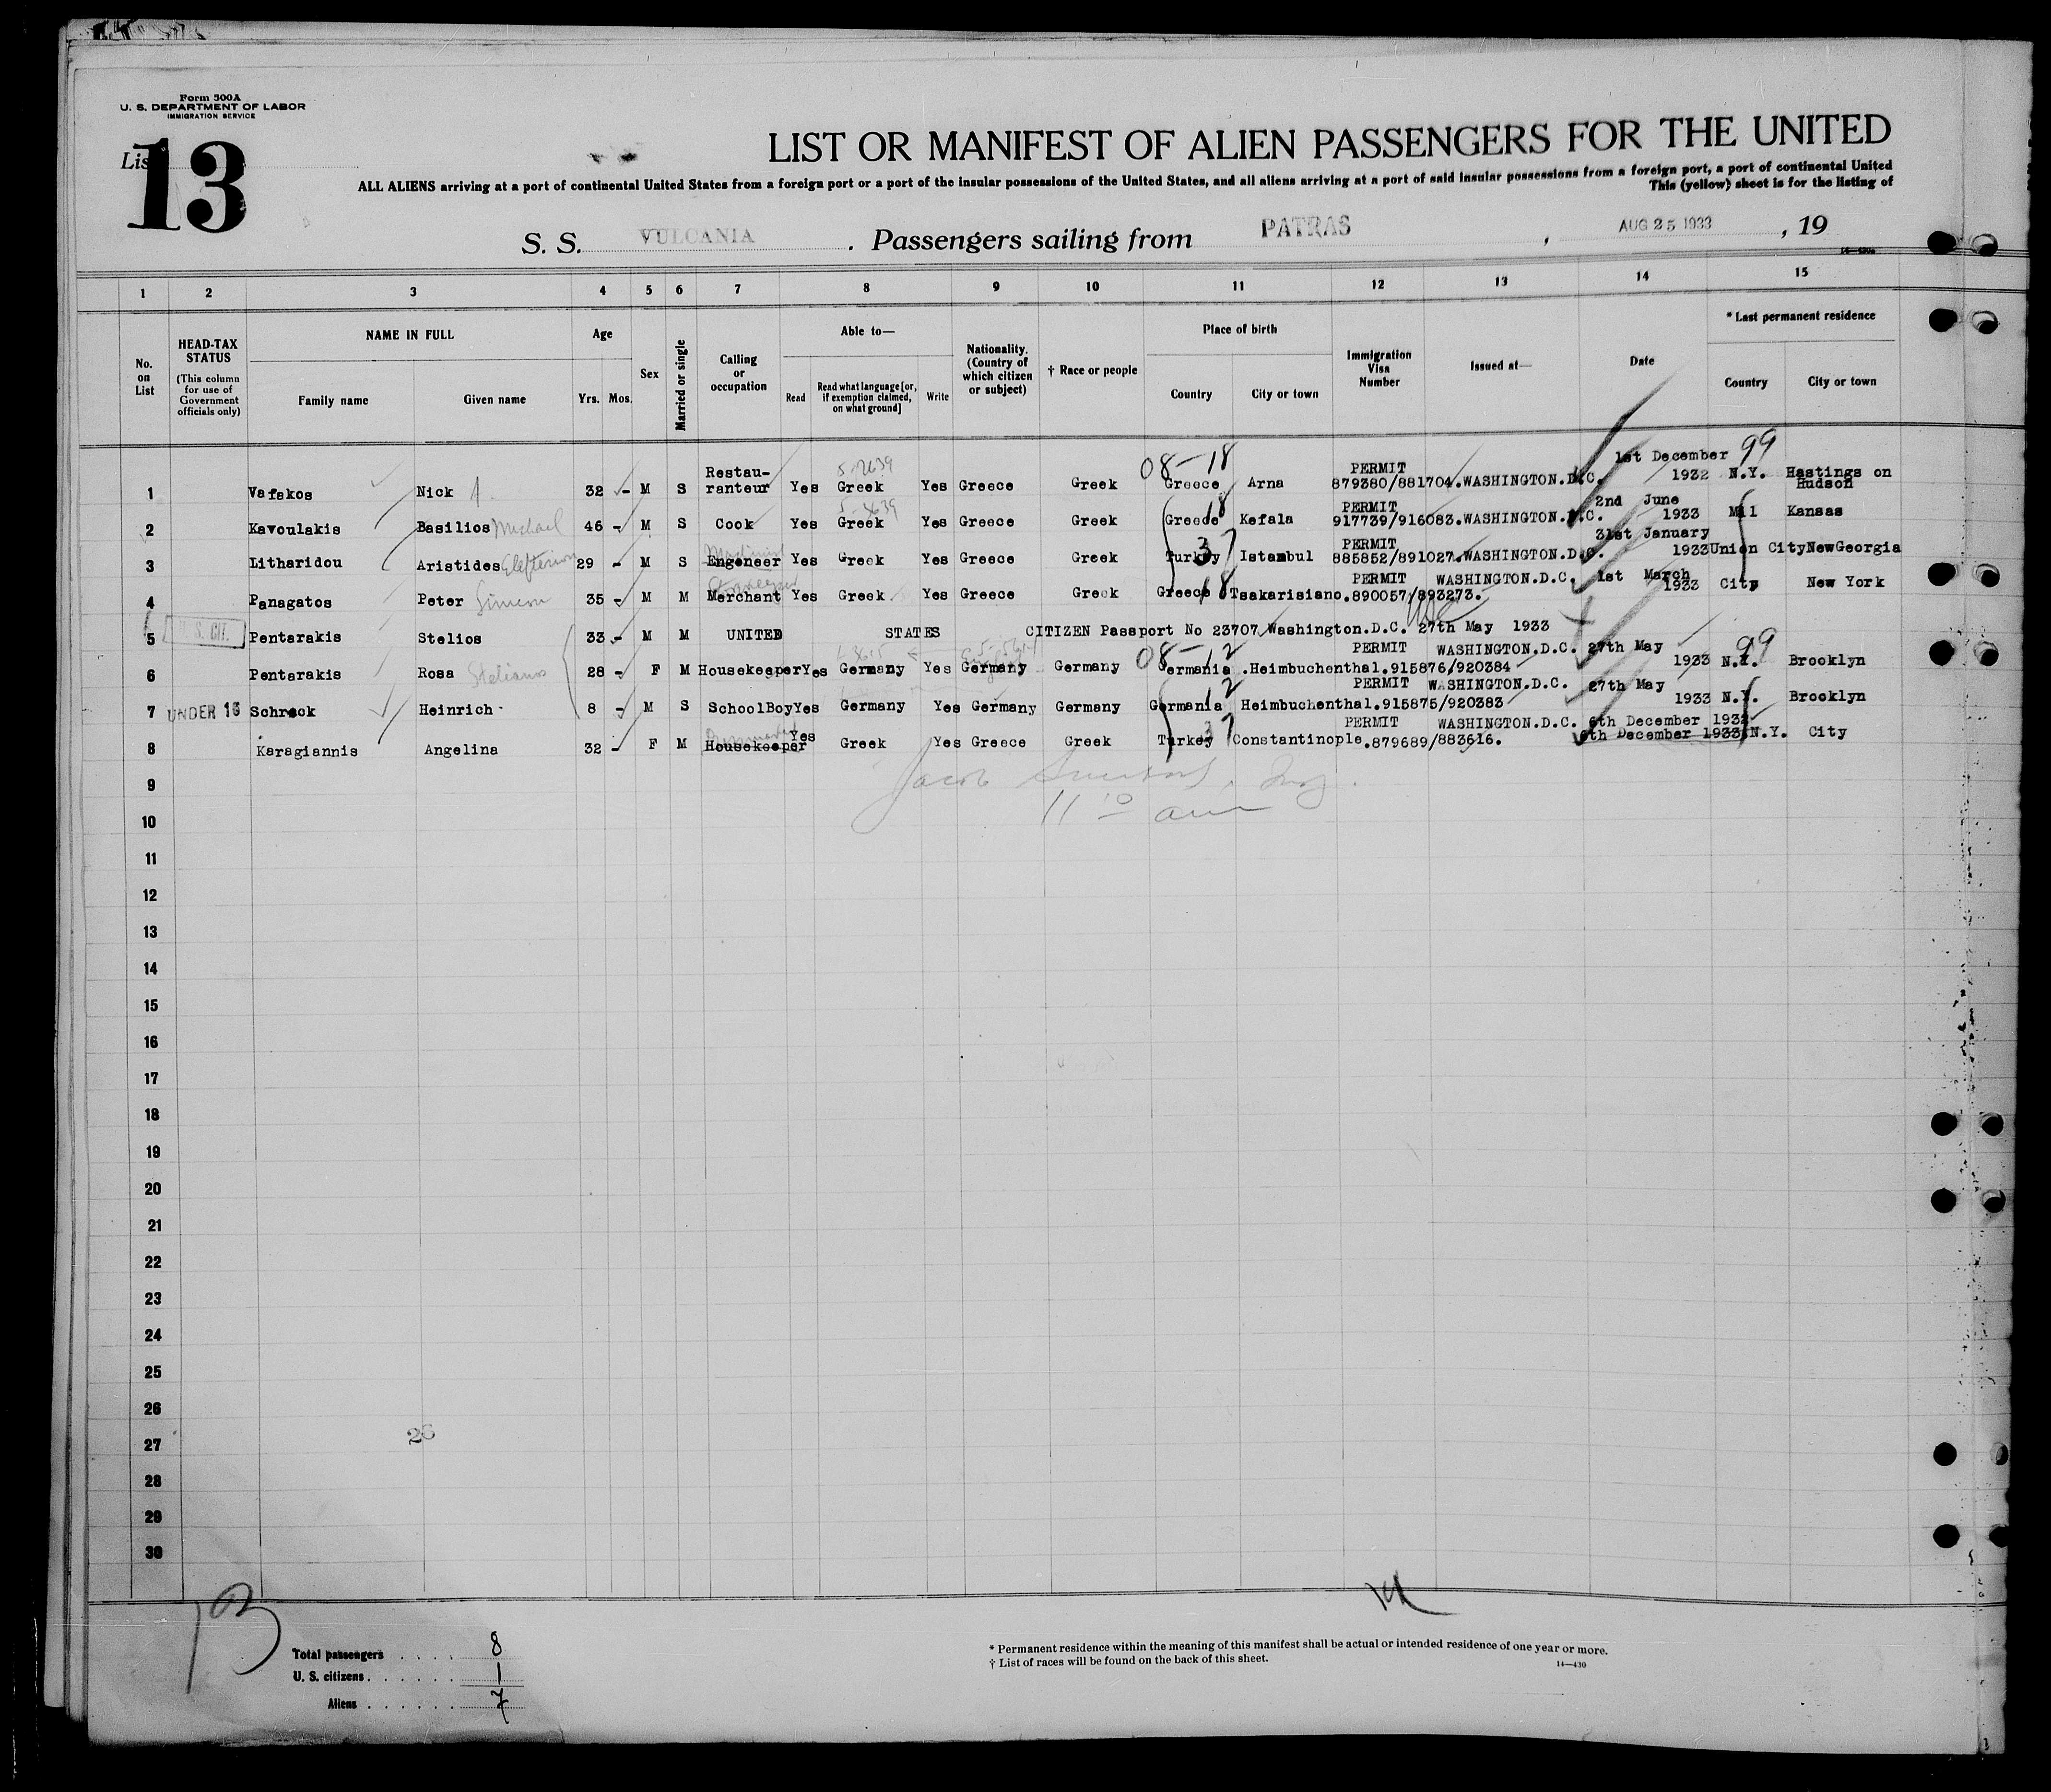 Form 500A
U. S. DEPARTMENT OF LABOR
IMMIGRATION SERVICE
List 13
LIST OR MANIFEST OF ALIEN PASSENGERS FOR THE UNITED
ALL ALIENS arriving at a port of continental United States from a foreign port or a port of the insular possessions of the United States, and all aliens arriving at a port of said insular possessions from a foreign port, a port of continental United
This (yellow) sheet is for the listing of
S. S. VULCANIA . Passengers sailing from PATRAS , AUG 25 1933 , 19
1 2 3 4 5 6 7 8 9 10 11 12 13 14 15
No. on List
HEAD-TAX STATUS (This column for use of Government officials only)
NAME IN FULL Family name Given name
Age Yrs. Mos.
Sex
Married or single
Calling or occupation
Able to— Read Read what language [or, if exemption claimed, on what ground] Write
Nationality. (Country of which citizen or subject)
† Race or people
Place of birth Country City or town
Immigration Visa Number
Issued at—
Date
* Last permanent residence Country City or town
08-18 99
1 Vafakos Nick 32 - M S Restau-ranteur Yes Greek Yes Greece Greek Greece Arna PERMIT 879380/881704.WASHINGTON.D.C. 1st December 1932 N.Y. Hastings on Hudson
2 Kavoulakis Basilios Michael 46 - M S Cook Yes Greek Yes Greece Greek Greece 18 Kefala PERMIT 917739/916083.WASHINGTON.D.C. 2nd June 1933 Mil Kansas
3 Litharidou Aristides Elefterion 29 - M S Engeneer Machinist Yes Greek Yes Greece Greek Turkey 37 Istambul PERMIT 885852/891027.WASHINGTON.D.C. 31st January 1933 Union City NewGeorgia
4 Panagatos Peter Simeon 35 - M M Merchant Storekeeper Yes Greek Yes Greece Greek Greece 18 Tsakarisiano.890057/893273. PERMIT WASHINGTON.D.C. 1st March 1933 City New York
5 U.S. CIT. Pentarakis Stelios 33 - M M UNITED STATES CITIZEN Passport No 23707 Washington.D.C. 27th May 1933
08-12 99
6 Pentarakis Rosa Stelianos 28 - F M Housekeeper Yes Germany Yes Germany Germany Germania .Heimbuchenthal.915876/920384 PERMIT WASHINGTON.D.C. 27th May 1933 N.Y. Brooklyn
7 UNDER 16 Schreck Heinrich 8 - M S SchoolBoy Yes Germany Yes Germany Germany Germania 12 Heimbuchenthal.915875/920383 PERMIT WASHINGTON.D.C. 27th May 1933 N.Y. Brooklyn
8 Karagiannis Angelina 32 - F M Housekeeper Yes Greek Yes Greece Greek Turkey 37 Constantinople.879689/883616. PERMIT WASHINGTON.D.C. 6th December 1932 6th December 1933 N.Y. City
9 Jacob
10 11 10 am
11
12
13
14
15
16
17
18
19
20
21
22
23
24
25
26
27 26
28
29
30
Total passengers . . . . 8
U. S. citizens . . . . . . 1
Aliens . . . . . . 7
* Permanent residence within the meaning of this manifest shall be actual or intended residence of one year or more.
† List of races will be found on the back of this sheet.
14—430